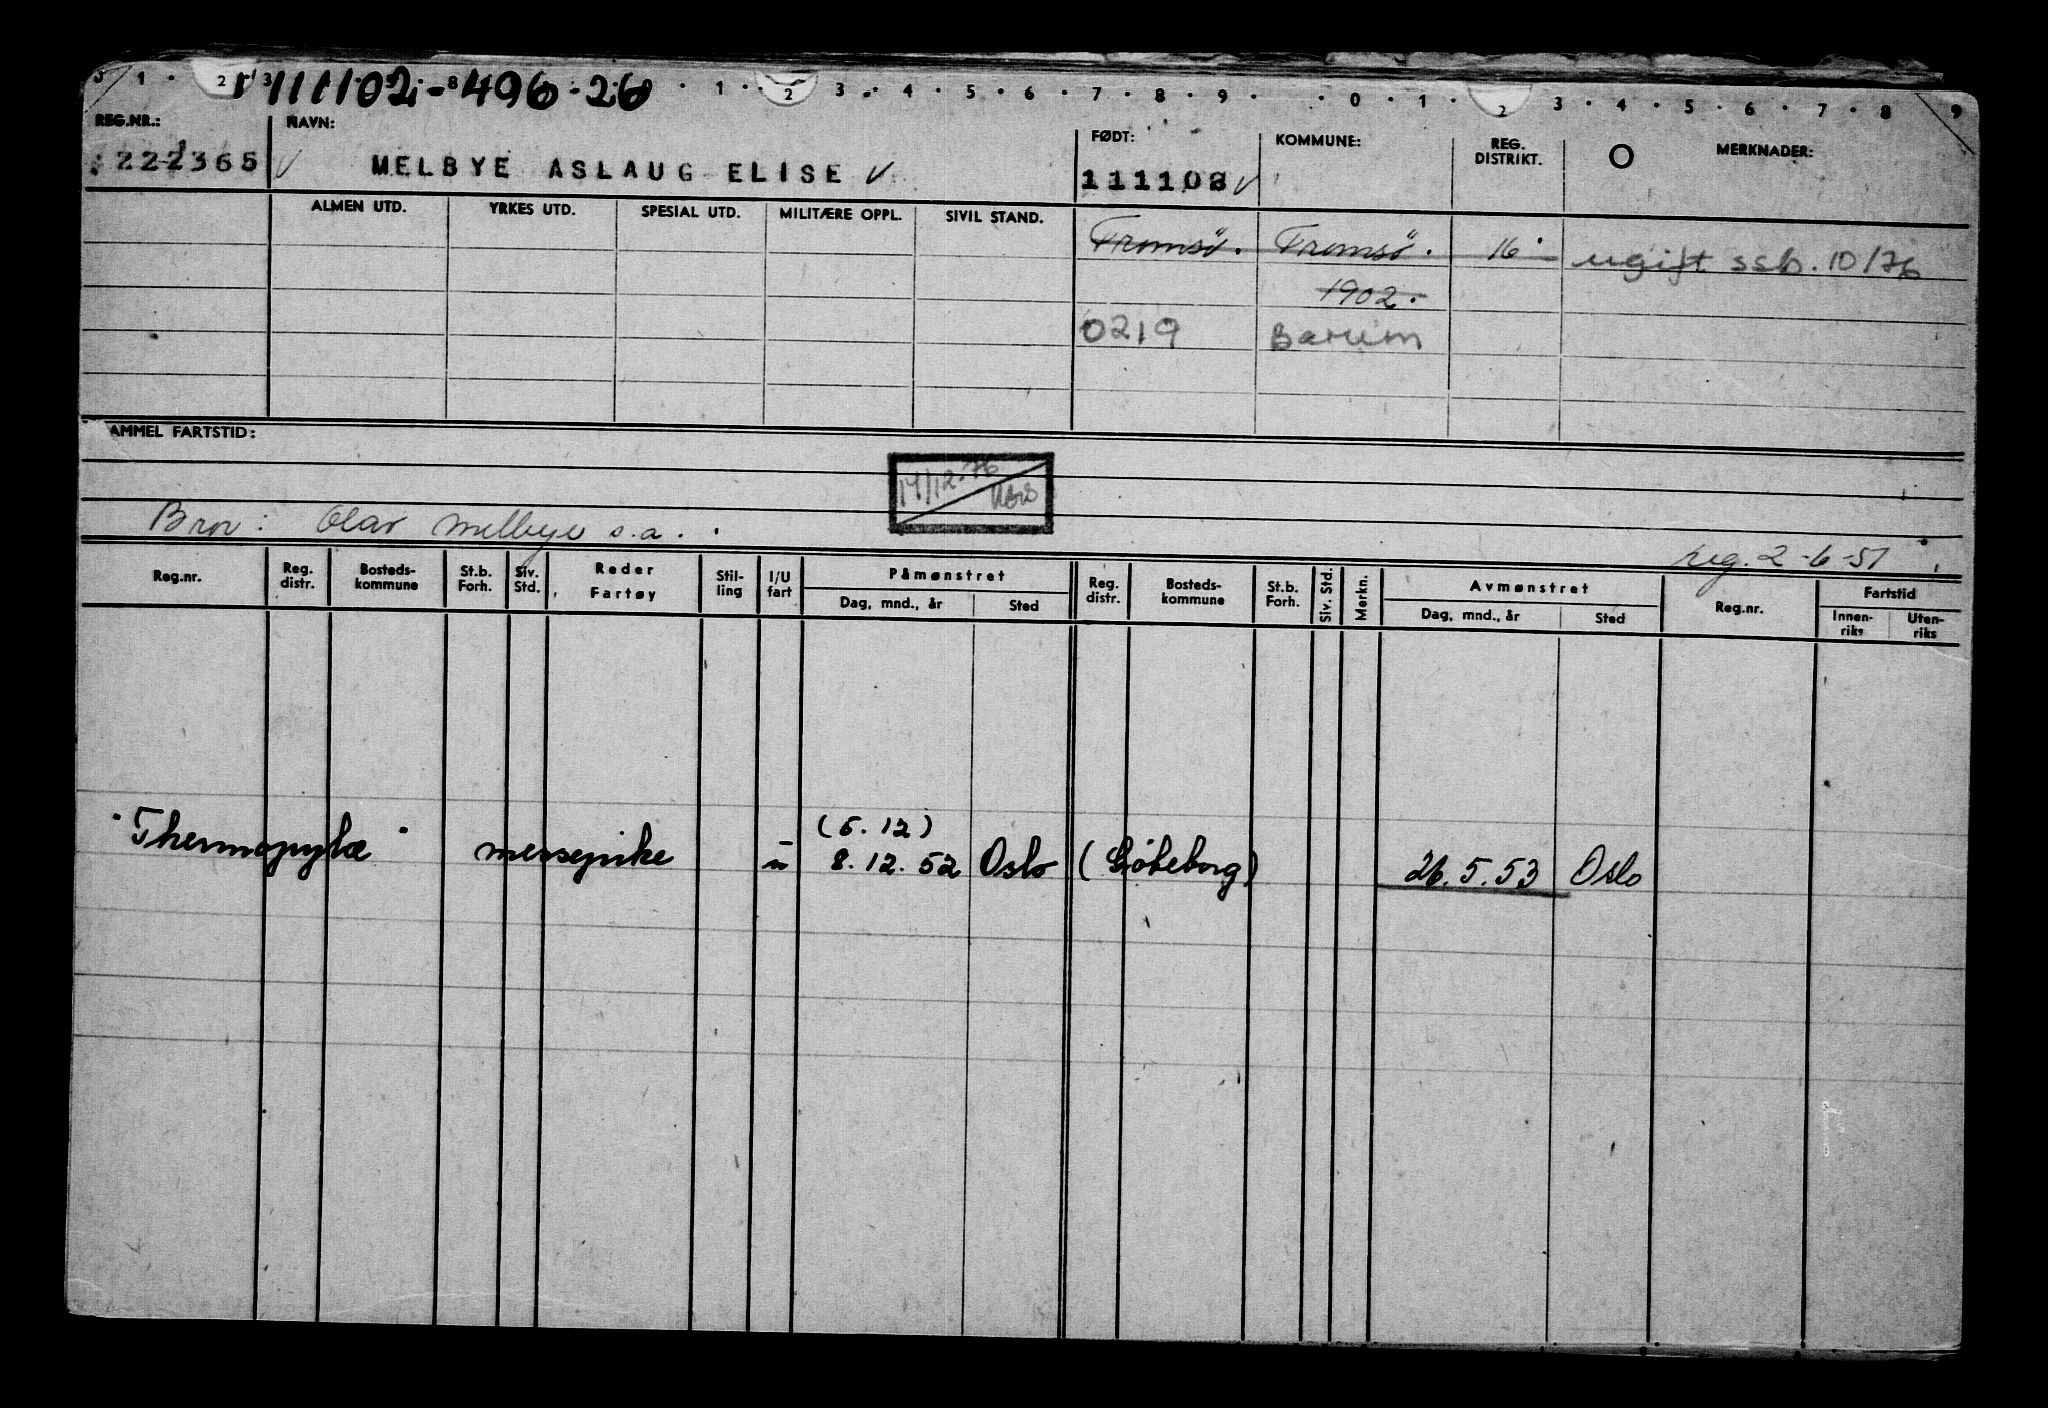 111102-496-26
J 1 · 2 3 · 8 · 1 · 2 3 · 4 · 5 · 6 · 7 · 8 · 9 · · 0 · 1 · 2 3 · 4 · 5 · 6 · 7 · 8 9
REG.NR.: NAVN: FØDT: KOMMUNE: REG. DISTRIKT. O MERKNADER:
222365 MELBYE ASLAUG ELISE 111102
ALMEN UTD. YRKES UTD. SPESIAL UTD. MILITÆRE OPPL. SIVIL STAND.
Tromsö. Tromsö. 16 ugift ssb. 10/76
1902.
0219 Bærum
AMMEL FARTSTID:
14/12.76
Bror: Olav Melbye s.a.
reg. 2-6-51
Reg.nr. Reg. distr. Bosteds- kommune St.b. Forh. Siv. Std. Reder Fartøy Stil- ling I/U fart Påmønstret Dag, mnd., år Sted Reg. distr. Bosteds- kommune St.b. Forh. Siv. Std. Merkn. Avmønstret Dag, mnd., år Sted Reg.nr. Fartstid Innen- riks Uten- riks
(5.12)
"Thermopylæ" messepike u 8.12.52 Oslo (Göteborg) 26.5.53 Oslo